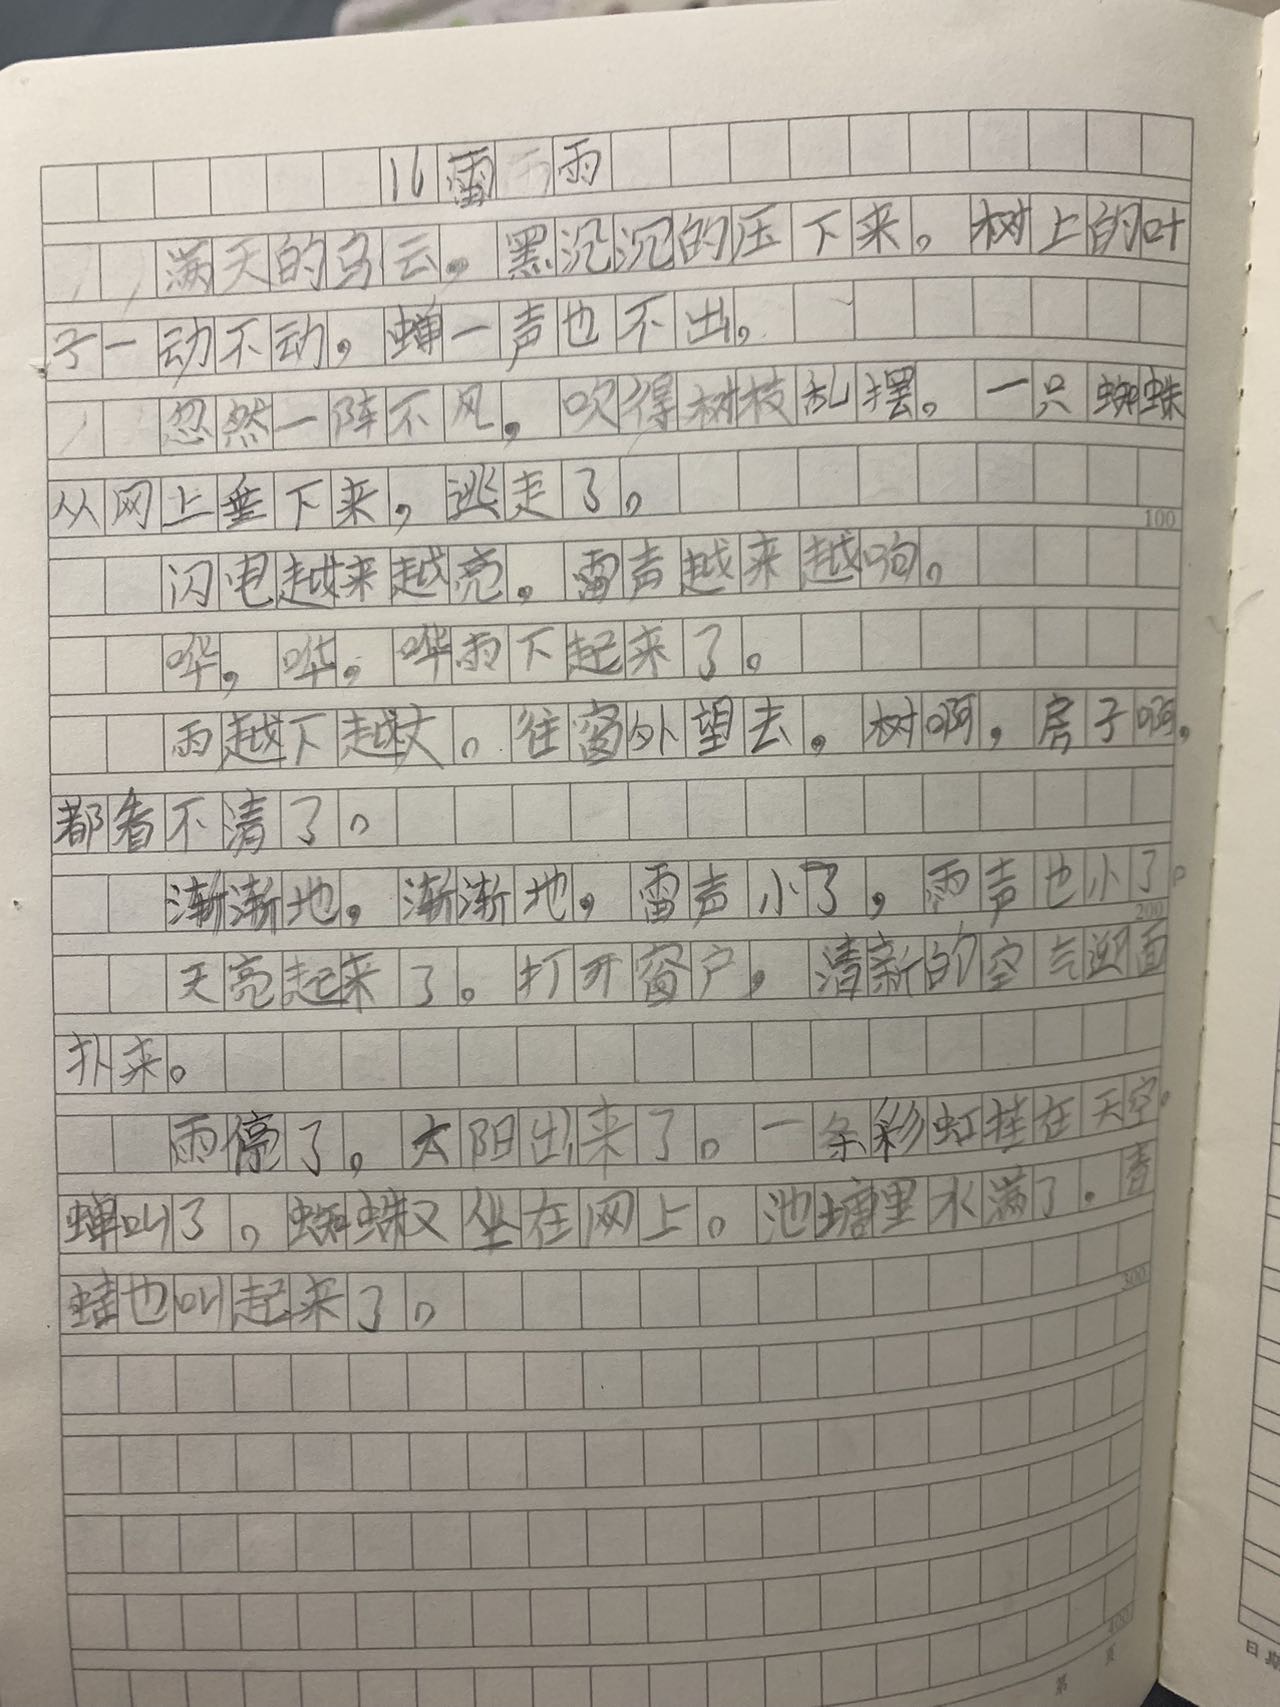 16雷雨
满天的乌云，黑沉沉的压下来。树上的叶
子一动不动，蝉一声也不出。
忽然一阵不风，吹得树枝乱摆。一只蜘蛛
从网上垂下来，逃走了。
100
闪电越来越亮，雷声越来越响。
哗，哗，哗雨下起来了。
雨越下越大。往窗外望去，树啊，房子啊，
都看不清了。
渐渐地，渐渐地，雷声小了，雨声也小了。
200
天亮起来了。打开窗户，清新的空气迎面
扑来。
雨停了。太阳出来了。一条彩虹挂在天空。
蝉叫了。蜘蛛又坐在网上。池塘里水满了。青
300
蛙也叫起来了。
400
第 页
日期